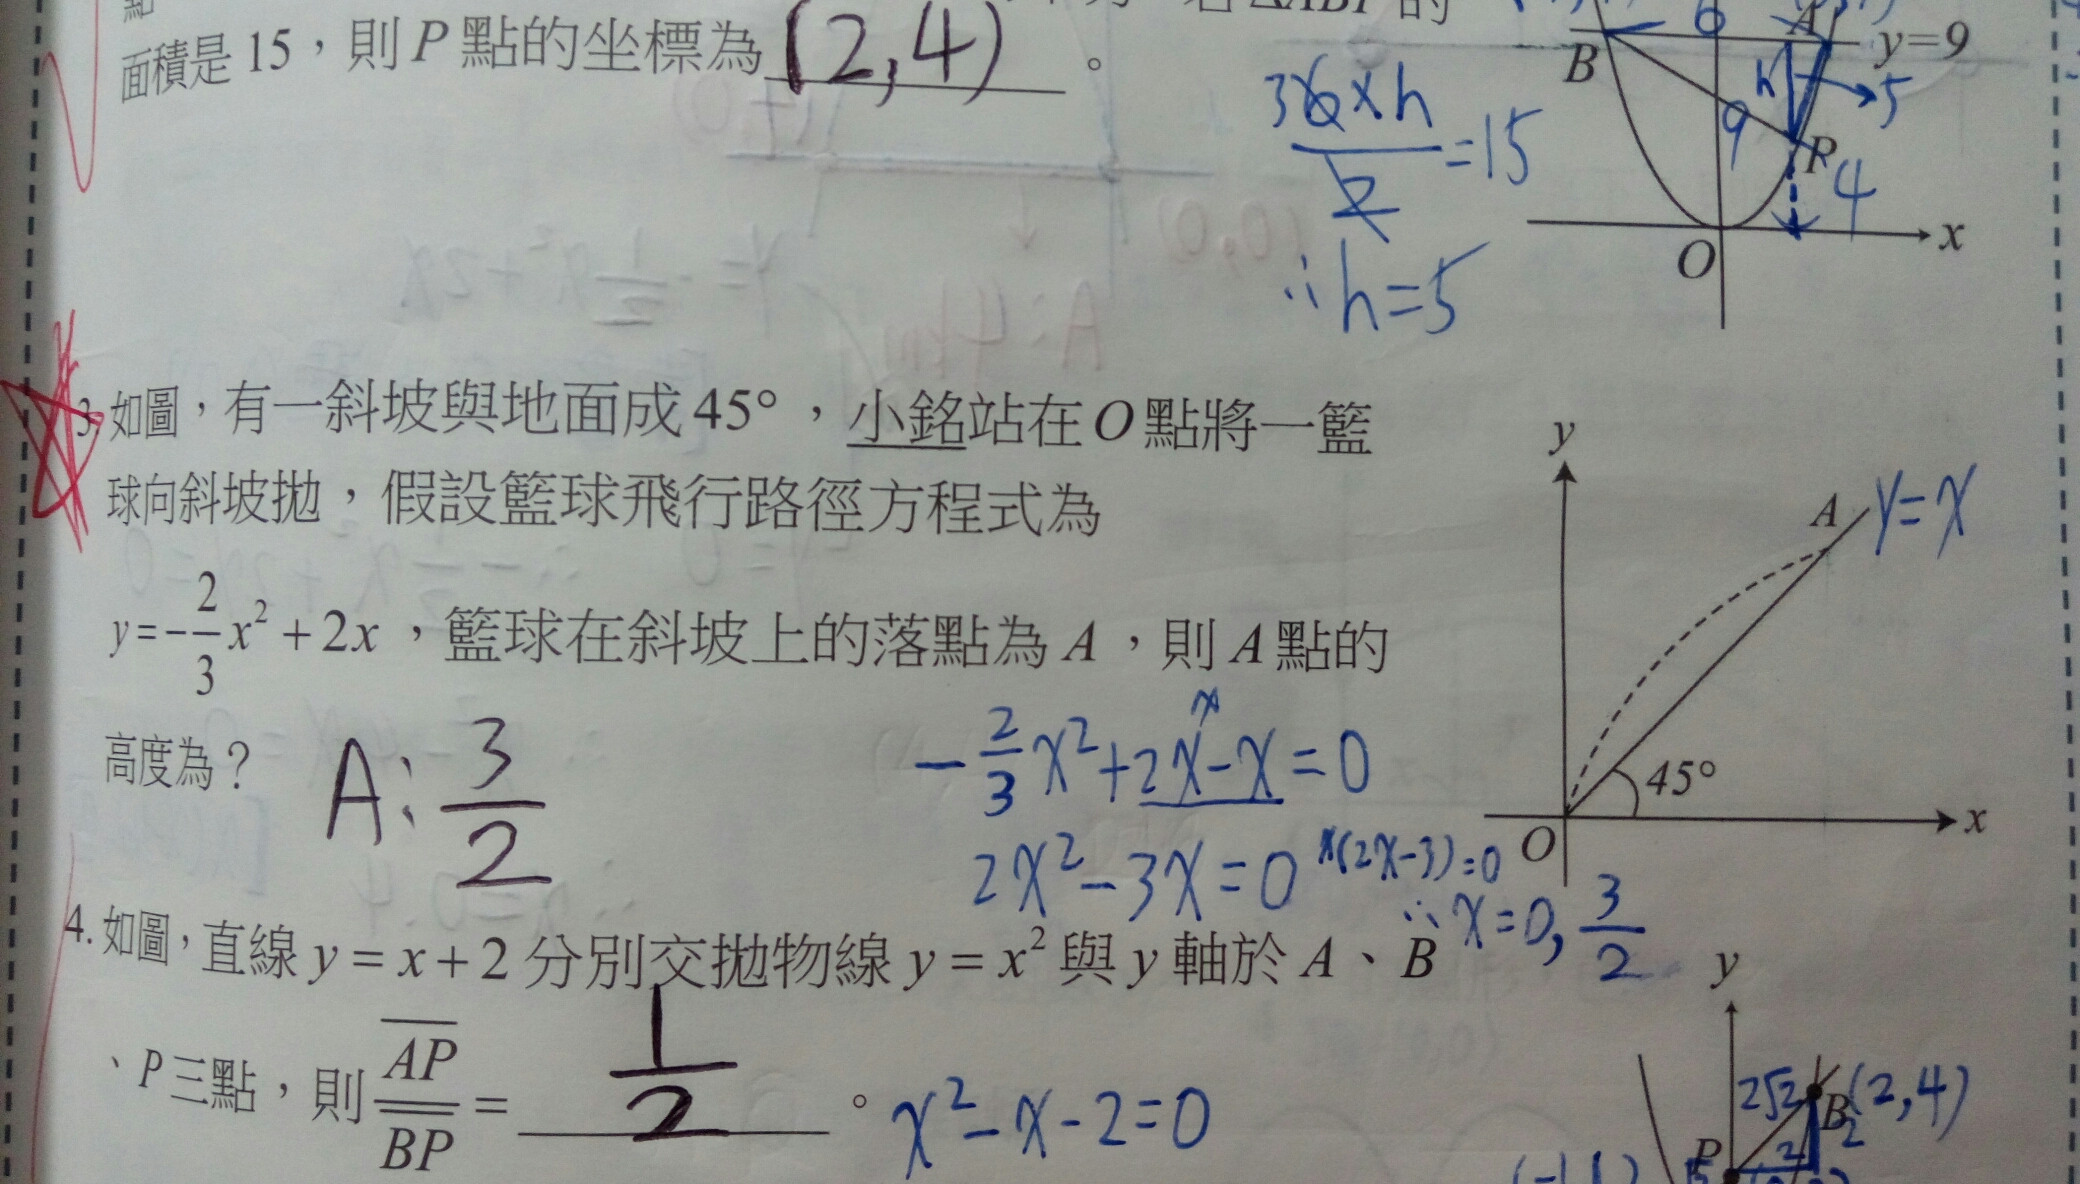 點
若△ABP的
面積是15，則P點的坐標為(2,4)。
B 6 A y=9
h 5
9 P 4
O x
36×h/2=15
∴h=5
3. 如圖，有一斜坡與地面成45°，小銘站在O點將一籃
球向斜坡拋，假設籃球飛行路徑方程式為
y=-2/3x²+2x，籃球在斜坡上的落點為A，則A點的
高度為？ A:3/2
-2/3x²+2x-x=0
x
2x²-3x=0 x(2x-3)=0
∴x=0,3/2
y
A y=x
45°
O x
4. 如圖，直線y=x+2分別交拋物線y=x²與y軸於A、B
、P三點，則AP/BP=1/2。
x²-x-2=0
y
2√2 B (2,4)
P 2 2